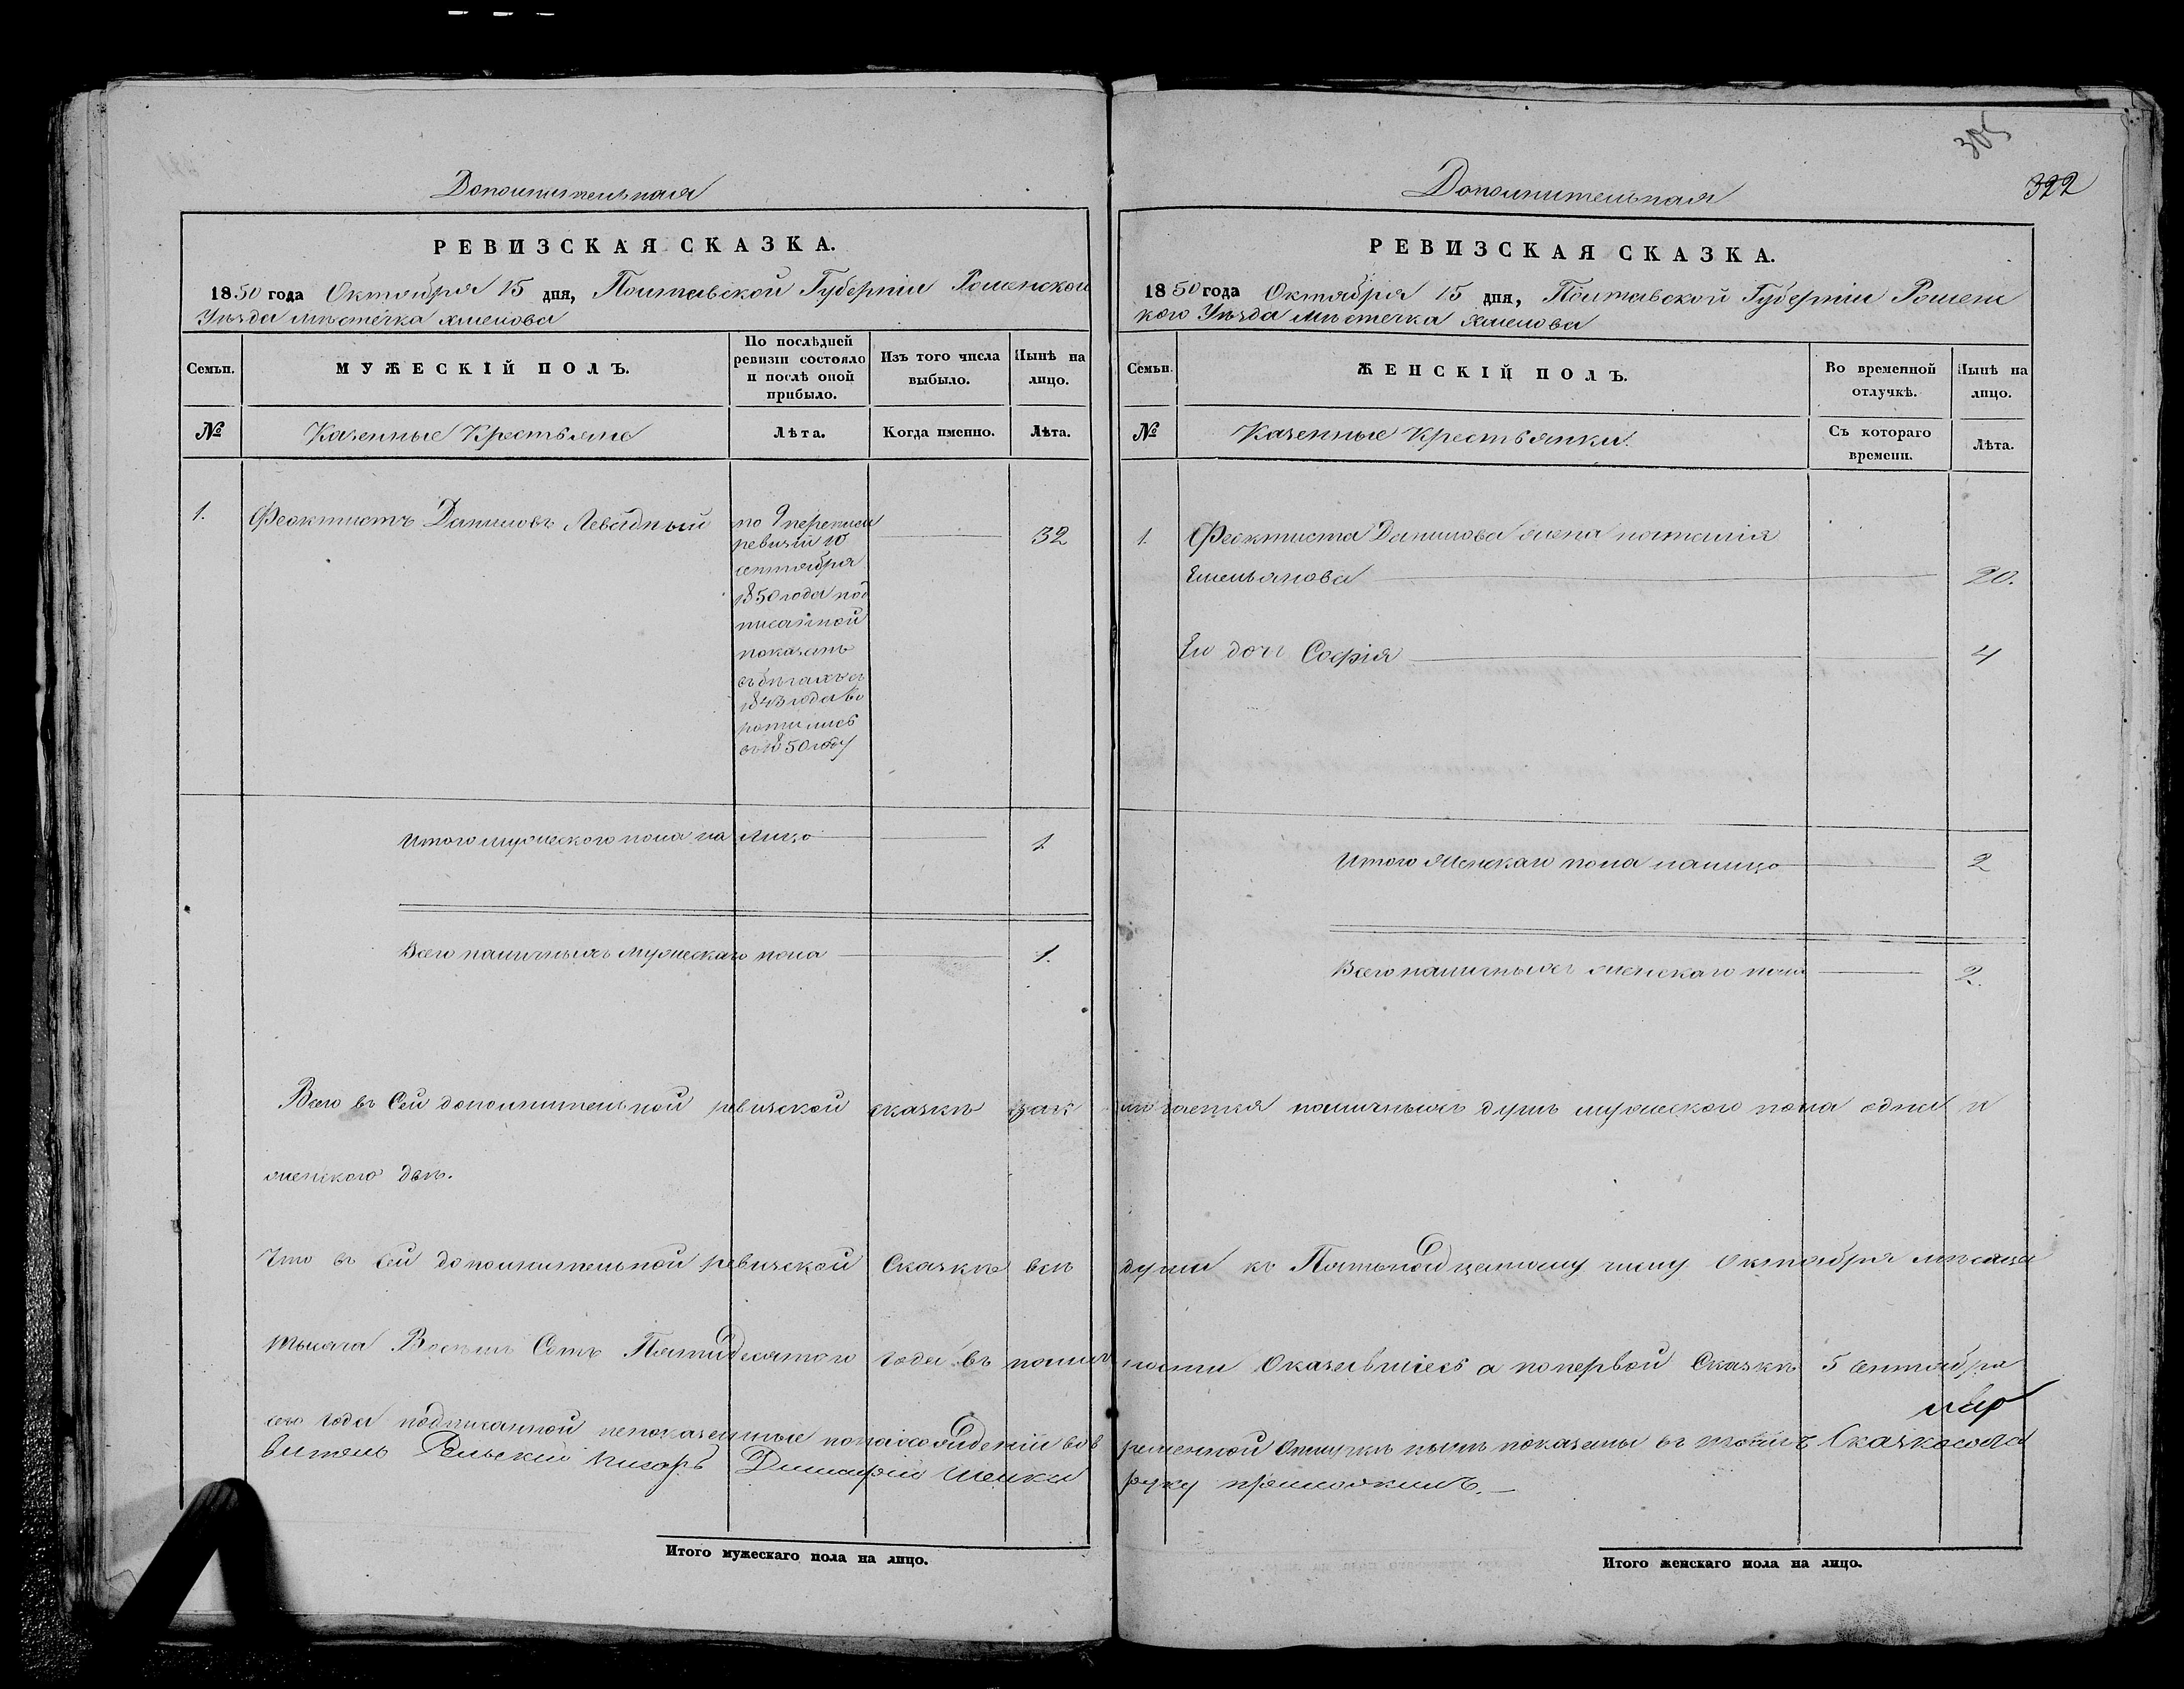 Дополнительная
РЕВИЗСКАЯ СКАЗКА.
1850 года Октября 15 дня, Полтавской Губерніи Роменской
Уѣзда мѣстечка хмелова
Семьи.
МУЖЕСКІЙ ПОЛЪ.
По послѣдней
ревизіи состояло
и послѣ оной
прибыло.
Изъ того числа
выбыло.
Нынѣ на
лицо.
№
Казенные Крестьяне
Лѣта.
Когда именно.
Лѣта.
1. Феоктистъ Даниловъ Левадный
32
по 9 переписи
ревизіи 10
сентября
1850 года под
писанной
показанъ
въ бѣгахъ съ
1843 года во
ротились
въ 1850 году
Итого мужеского пола на лицо 1
Всего наличныхъ мужескаго пола 1.
305
322
Дополнительная
РЕВИЗСКАЯ СКАЗКА.
1850 года Октября 15 дня, Полтавской Губерніи Ромен
кого Уѣзда мѣстечка хмелова
Семьи.
ЖЕНСКІЙ ПОЛЪ.
Во временной
отлучкѣ.
Нынѣ на
лицо.
№
Казенные Крестьянки.
Съ котораго
времени.
Лѣта.
1. Феоктиста Данилова жена наталія
Емельянова 20.
Ея дочь Софія 4
Итого женскаго пола налицо 2
Всего наличныхъ женскаго пола 2.
Всего въ Сей дополнительной ревизской сказкѣ зак лючается наличныхъ душъ мужеского пола одна и
женского двѣ.
Что въ сей дополнительной ревизской Сказкѣ всѣ души къ Пятьнадцатому числу Октября мѣсяца
тысяча Восемь Сотъ Пятидесятого года въ налич ности Оказавшіесь а попервой Сказкѣ 5 сентября
сего года подписанной непоказанные во временной Отлучкѣ нынѣ показаны въ Сказкѣ
витель Сельскій писарь Димитрій руку приложилъ.
Итого мужескаго пола на лицо.
Итого женскаго пола на лицо.